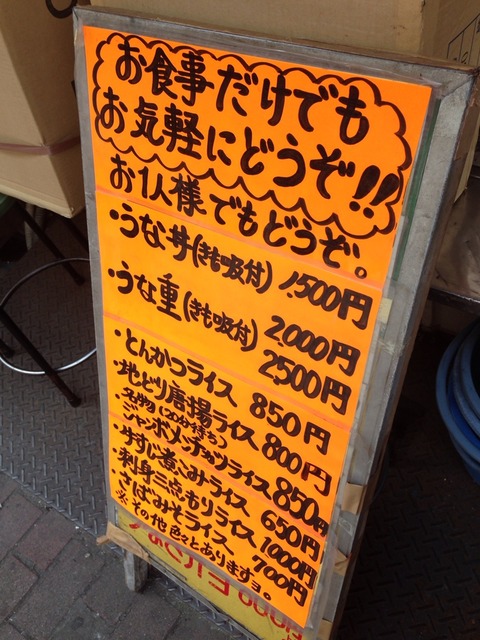 お食事だけでも
お気軽にどうぞ!!
お1人様でもどうぞ。
・うな丼(きも吸付) 1,500円
・うな重(きも吸付) 2,000円
2,500円
・とんかつライス 850円
・地どり唐揚ライス 800円
名物(20分待ち)
ジャンボメンチカツライス 850円
・牛すじ煮こみライス 650円
・刺身三点もりライス 1000円
・さばみそライス 700円
※その他色々とありますョ。